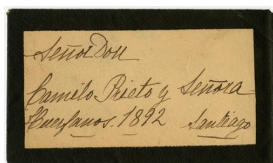 Señor Don
Camilo Prieto y Señora
Huérfanos. 1892 Santiago